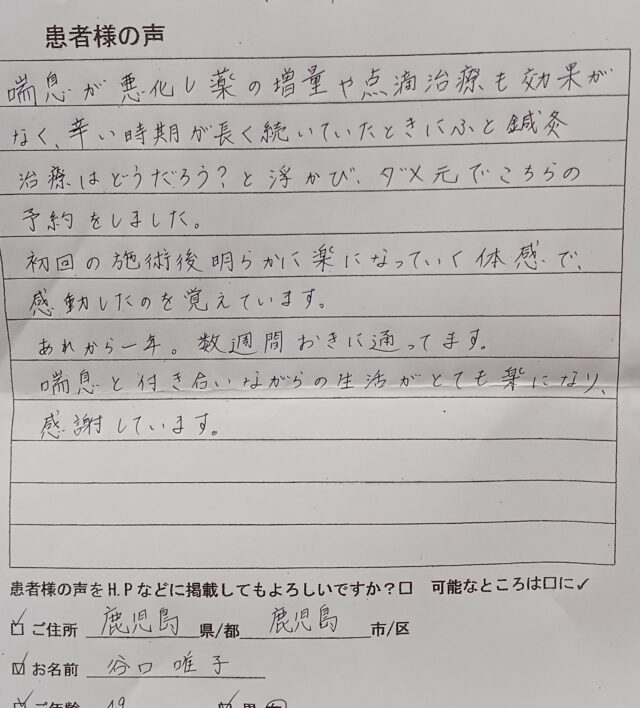 患者様の声
喘息が悪化し薬の増量や点滴治療も効果が
なく、辛い時期が長く続いていたときにふと鍼灸
治療はどうだろう?と浮かび、ダメ元でこちらの
予約をしました。
初回の施術後明らかに楽になっていく体感で、
感動したのを覚えています。
あれから一年。数週間おきに通ってます。
喘息と付き合いながらの生活がとても楽になり、
感謝しています。
患者様の声をH.Pなどに掲載してもよろしいですか?□ 可能なところは□に✓
☑ ご住所 鹿児島 県/都 鹿児島 市/区
☑ お名前 谷口唯子
☑ ご年齢 ☑ 男